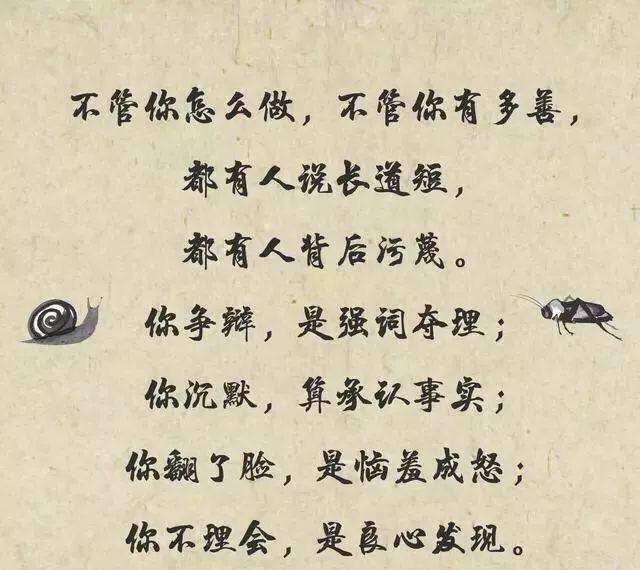 不管你怎么做，不管你有多善，
都有人说长道短，
都有人背后污蔑。
你争辩，是强词夺理；
你沉默，算承认事实；
你翻了脸，是恼羞成怒；
你不理会，是良心发现。